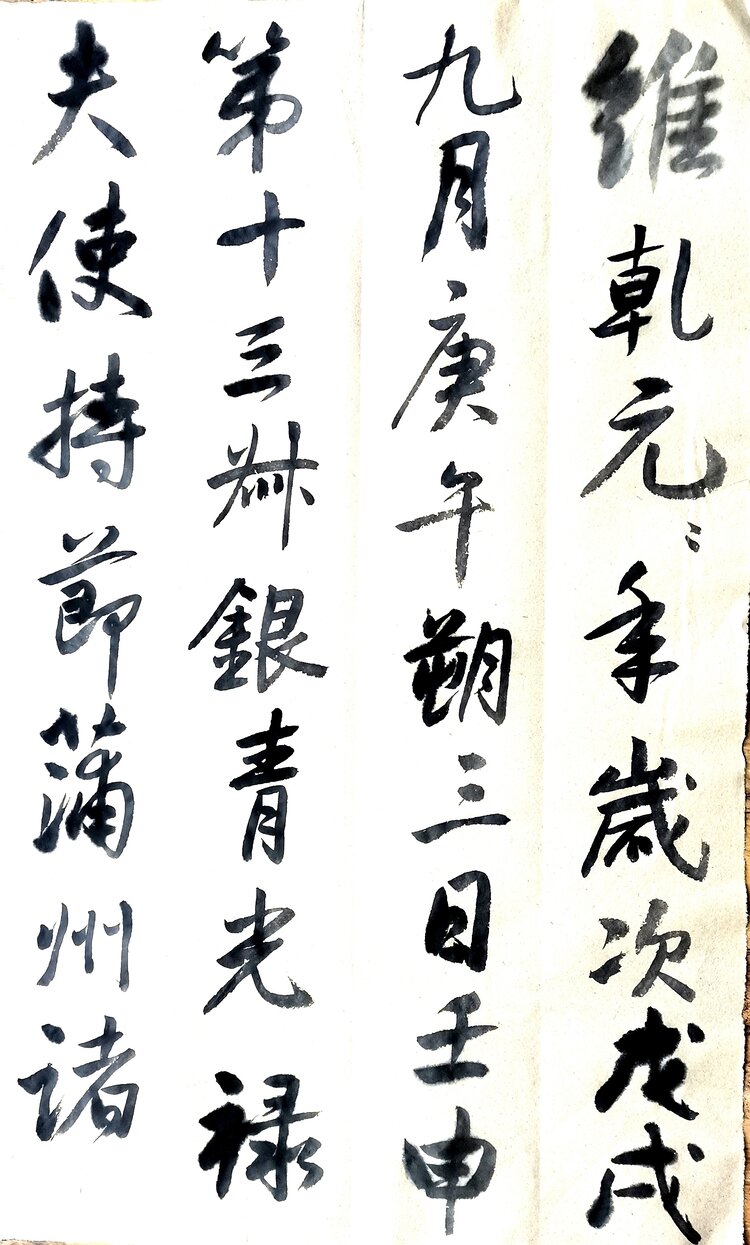 維乾元〻年歲次戊戌
九月庚午朔三日壬申
第十三叔銀青光禄
夫使持節蒲州諸